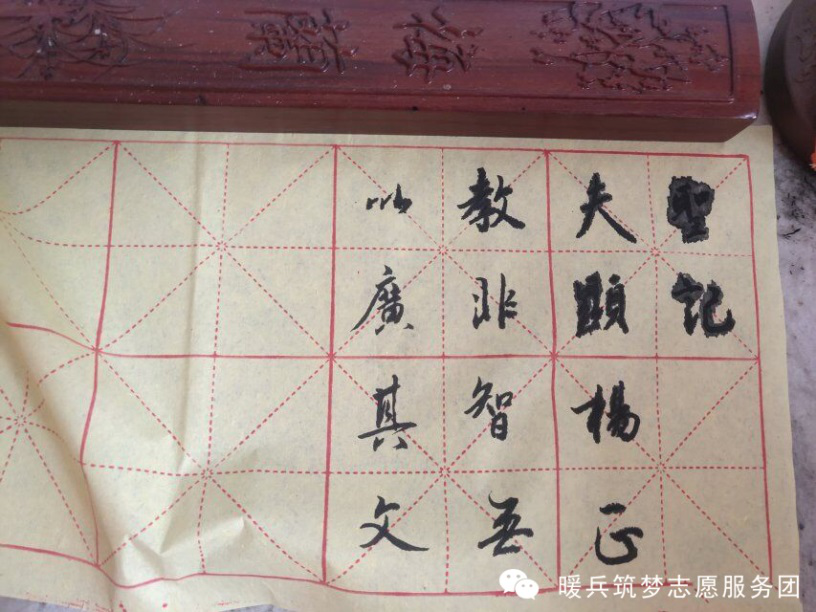 聖記
夫顯楊正
教非智無
以廣其文
暖兵筑梦志愿服务团